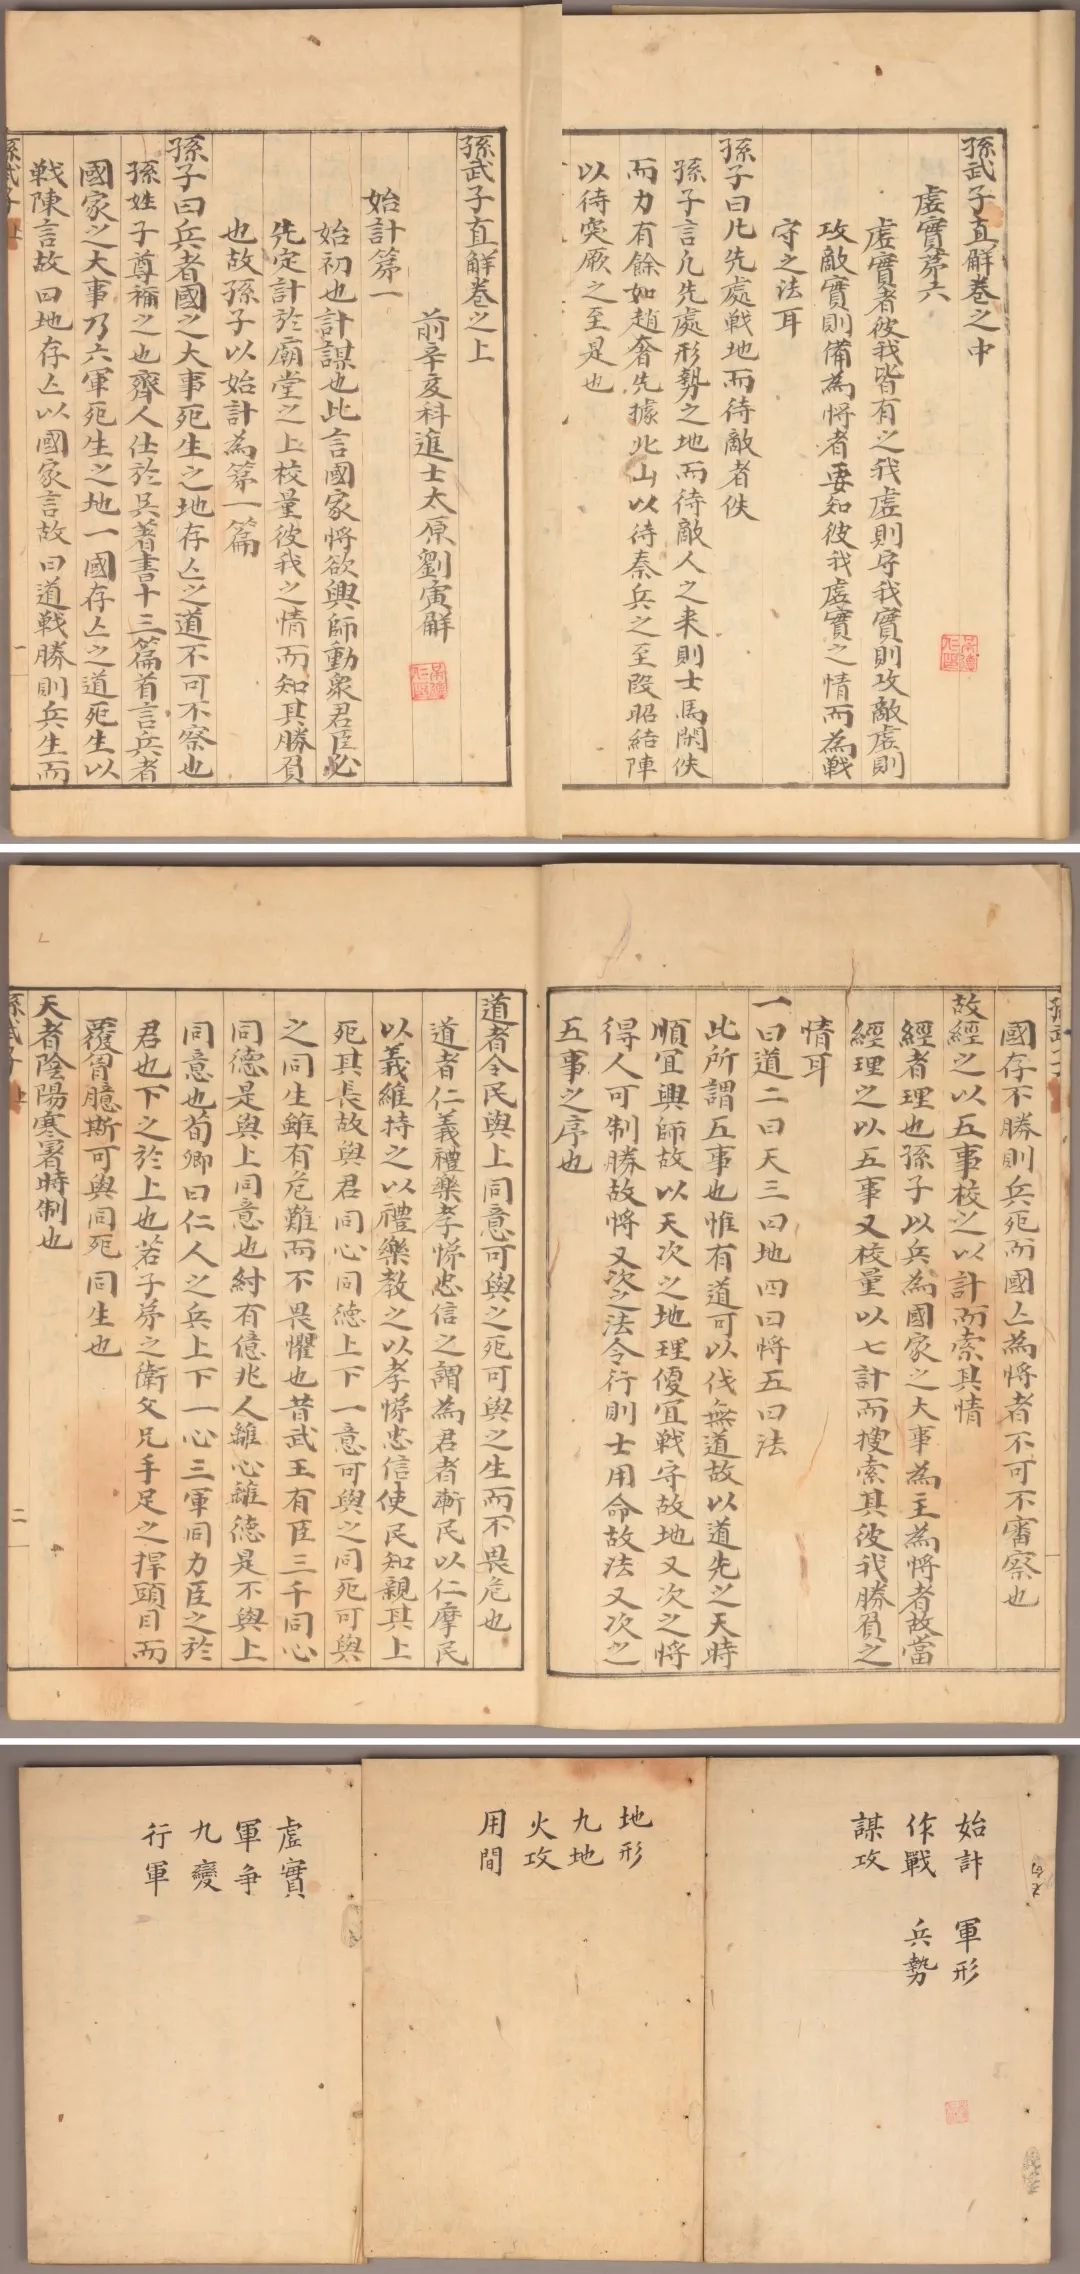 孫武子直解卷之中
虛實第六
虛實者彼我皆有之我虛則守我實則攻敵虛則
攻敵實則備為將者要知彼我虛實之情而為戰
守之法耳
孫子曰凡先處戰地而待敵者佚
孫子言凡先處形勢之地而待敵人之来則士馬閑佚
而力有餘如趙奢先據北山以待秦兵之至段昭結陣
以待突厥之至是也
孫武子直解卷之上
前辛亥科進士太原劉寅解
始計第一
始初也計謀也此言國家將欲興師動衆君臣必
先定計於廟堂之上校量彼我之情而知其勝負
也故孫子以始計為第一篇
孫子曰兵者國之大事死生之地存亡之道不可不察也
孫姓子尊稱之也齊人仕於吳著書十三篇首言兵者
國家之大事乃六軍死生之地一國存亡之道死生以
戰陳言故曰地存亡以國家言故曰道戰勝則兵生而
孫武子 上 一
國存不勝則兵死而國亡為將者不可不審察也
故經之以五事校之以計而索其情
經者理也孫子以兵為國家之大事為主為將者故當
經理之以五事又校量以七計而搜索其彼我勝負之
情耳
一曰道二曰天三曰地四曰將五曰法
此所謂五事也惟有道可以伐無道故以道先之天時
順宜興師故以天次之地理優宜戰守故地又次之將
得人可制勝故將又次之法令行則士用命故法又次之
五事之序也
道者令民與上同意可與之死可與之生而不畏危也
道者仁義禮樂孝悌忠信之謂為君者漸民以仁摩民
以義維持之以禮樂教之以孝悌忠信使民知親其上
死其長故與君同心同德上下一意可與之同死可與
之同生雖有危難而不畏懼也昔武王有臣三千同心
同德是與上同意也紂有億兆人離心離德是不與上
同意也荀卿曰仁人之兵上下一心三軍同力臣之於
君也下之於上也若子弟之衛父兄手足之捍頭目而
覆胷臆斯可與同死同生也
天者陰陽寒暑時制也
孫武子 上 二
始計 軍形
作戰 兵勢
謀攻
地形
九地
火攻
用間
虛實
軍争
九變
行軍